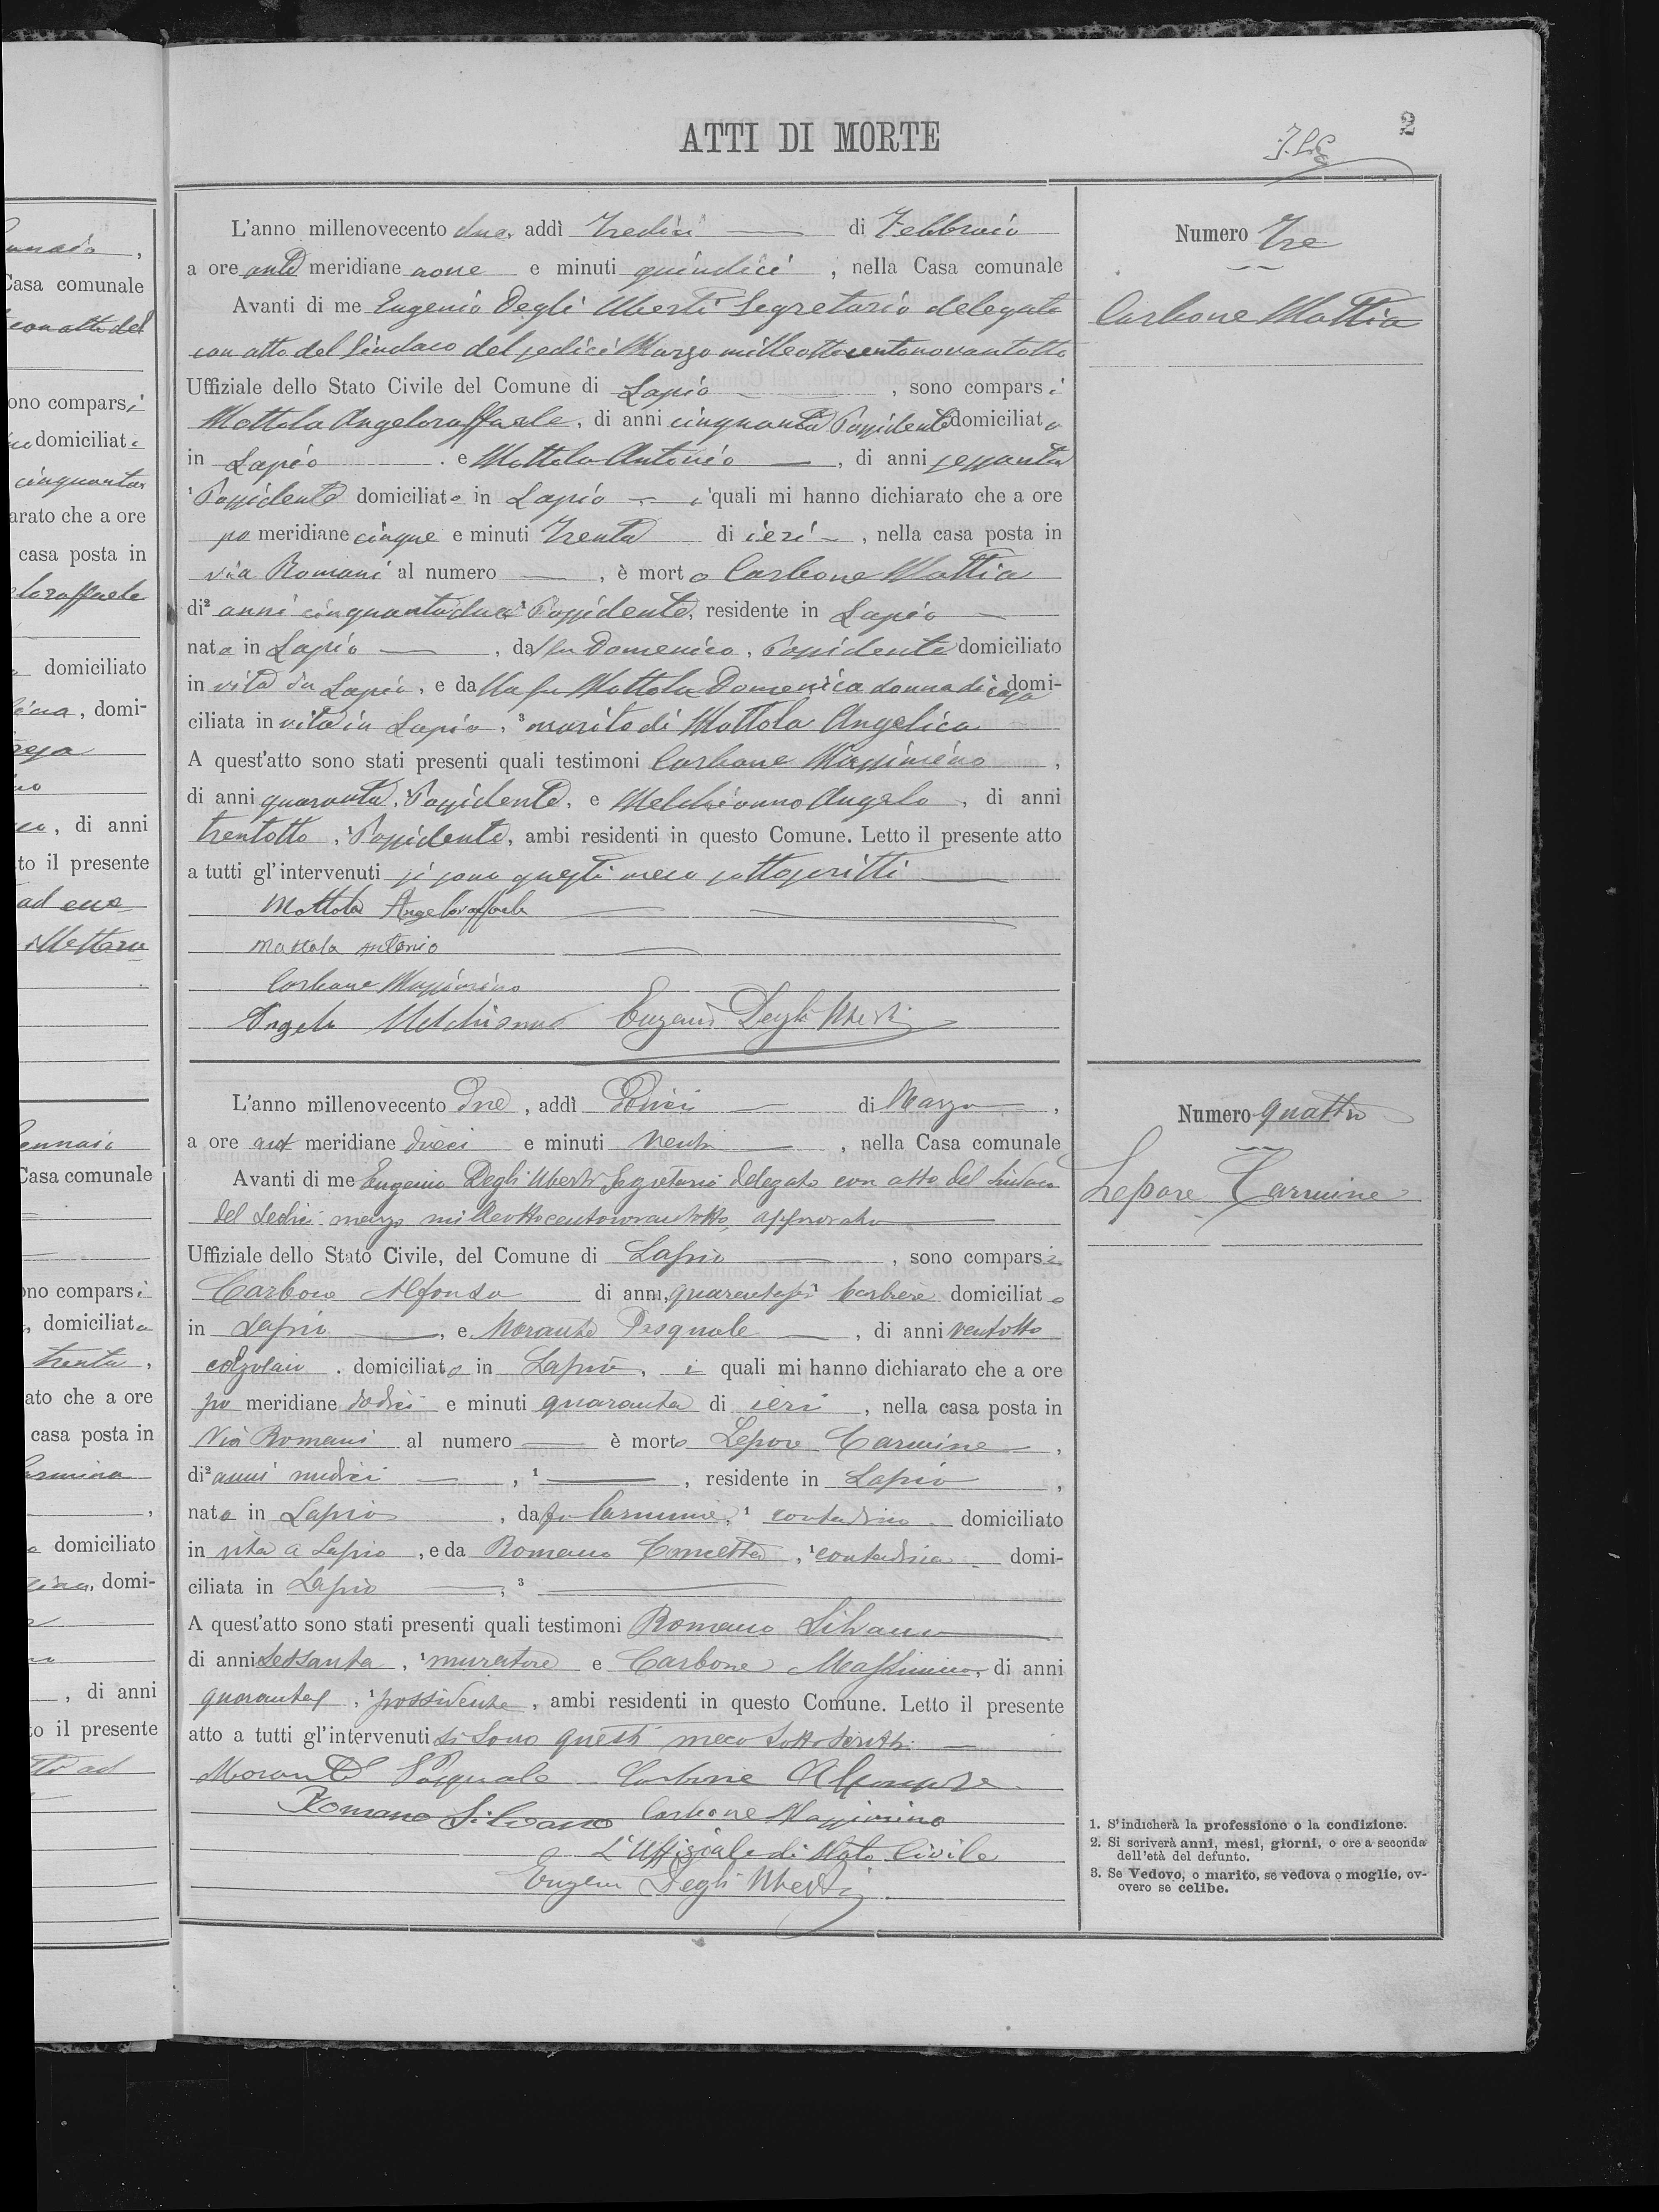 ATTI DI MORTE
2
L'anno millenovecento due, addì Tredici di Febbraio
a ore ante meridiane nove e minuti quindici, nella Casa comunale
Avanti di me Eugenio Degli Uberti Segretario delegato
con atto del Sindaco del sedici Marzo milleottocentonovantotto
Uffiziale dello Stato Civile del Comune di Lapio, sono comparsi
Mottola Angeloraffaele, di anni cinquanta Possidente domiciliato
in Lapio e Mottola Antonio, di anni sessanta
¹Possidente domiciliato in Lapio i quali mi hanno dichiarato che a ore
po meridiane cinque e minuti Trenta di ieri, nella casa posta in
via Romani al numero , è morto Carbone Mattia
di² anni cinquantadue ¹Possidente, residente in Lapio
nato in Lapio, dal fu Domenico, Possidente domiciliato
in vita in Lapio, e dalla fu Mottola Domenica donna di casa domi-
ciliata in vita in Lapio, ³marito di Mottola Angelica
A quest'atto sono stati presenti quali testimoni Carbone Massimino,
di anni quaranta, ¹Possidente, e Melchionno Angelo, di anni
trentotto, ¹Possidente, ambi residenti in questo Comune. Letto il presente atto
a tutti gl'intervenuti si sono questi meco sottoscritti
Mottola Angeloraffaele
Mottola Antonio
Carbone Massimino
Angelo Melchionno Eugenio Degli Uberti
Numero Tre
Carbone Mattia
L'anno millenovecento Due, addì Dodici di Marzo,
a ore ant meridiane dieci e minuti venti, nella Casa comunale
Avanti di me Eugenio Degli Uberti Segretario delegato con atto del Sindaco
del sedici marzo milleottocentonovantotto, approvato
Uffiziale dello Stato Civile, del Comune di Lapio, sono comparsi
Carbone Alfonso di anni, quarantasei ¹ barbiere domiciliato
in Lapio, e Morante Pasquale, di anni ventotto
calzolaio. domiciliato in Lapio, i quali mi hanno dichiarato che a ore
po meridiane dodici e minuti quaranta di ieri, nella casa posta in
Via Romani al numero è morto Lepore Carmine,
di² anni undici, ¹ , residente in Lapio,
nato in Lapio, da fu Carmine, ¹ contadino domiciliato
in vita a Lapio, e da Romano Concetta, ¹contadina domi-
ciliata in Lapio, ³
A quest'atto sono stati presenti quali testimoni Romano Silvano
di anni sessanta, ¹muratore e Carbone Massimino, di anni
quaranta, ¹possidente, ambi residenti in questo Comune. Letto il presente
atto a tutti gl'intervenuti si sono questi meco sottoscritti
Morante Pasquale Carbone Alfonso
Romano Silvano Carbone Massimino
L'Uffiziale di Stato Civile
Eugenio Degli Uberti
Numero quattro
Lepore Carmine
1. S'indicherà la professione o la condizione.
2. Si scriverà anni, mesi, giorni, o ore a seconda
dell'età del defunto.
3. Se Vedovo, o marito, se vedova o moglie, ov-
overo se celibe.